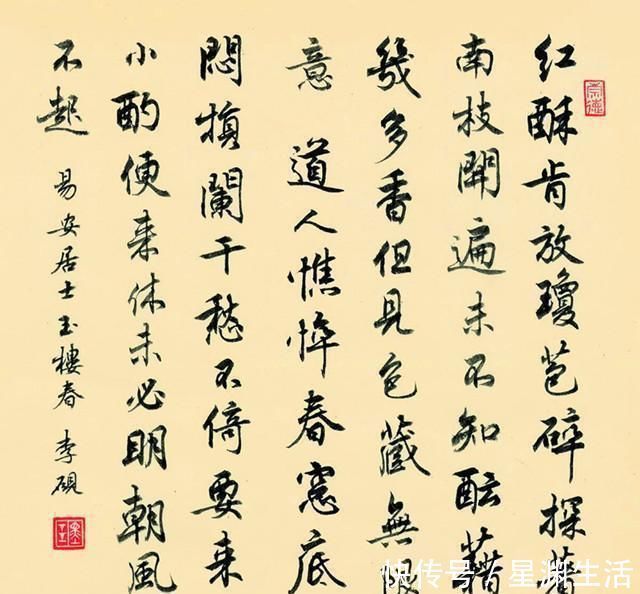 红酥肯放瓊苞碎探著
南枝開遍未不知酝藉
幾多香但見包藏無限
意 道人憔悴春窓底
悶損闌干愁不倚要来
小酌便来休未必明朝風
不起 易安居士玉樓春 李硯
崇德
快传号/星渊生活